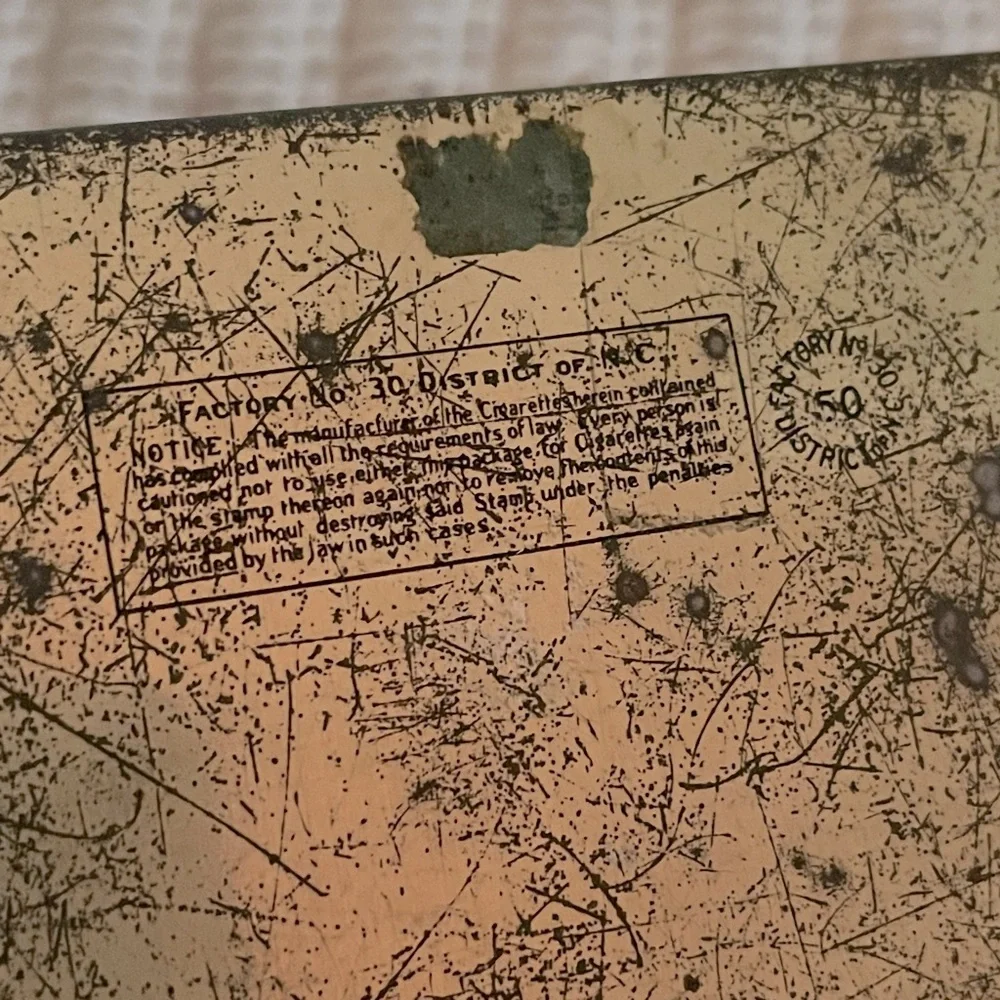 FACTORY No 30 DISTRICT OF N.C.
NOTICE: The manufacturer of the Cigarettes herein contained
has complied with all the requirements of law. Every person is
cautioned not to use either this package for Cigarettes again
or the stamp thereon again nor to remove the contents of this
package without destroying said Stamp under the penalties
provided by the law in such cases.
FACTORY No 30
50
DISTRICT OF N.C.